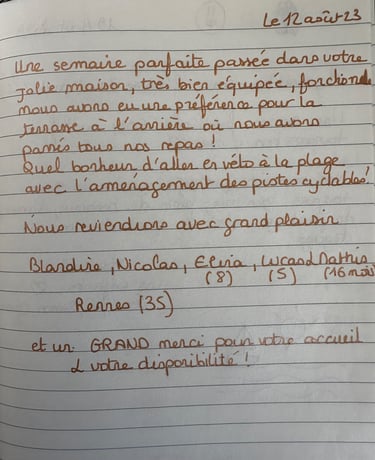 Le 12 août 23
Une semaine parfaite passée dans votre
jolie maison, très bien équipée, fonctionnelle
nous avons eu une préférence pour la
terrasse à l'arrière où nous avons
pris tous nos repas !
Quel bonheur d'aller en vélo à la plage
avec l'aménagement des pistes cyclables!
Nous reviendrons avec grand plaisir
Blandine, Nicolas, Elina, Lucas & Mathis
(8) (5) (16 mois)
Rennes (35)
et un GRAND merci pour votre accueil
& votre disponibilité !